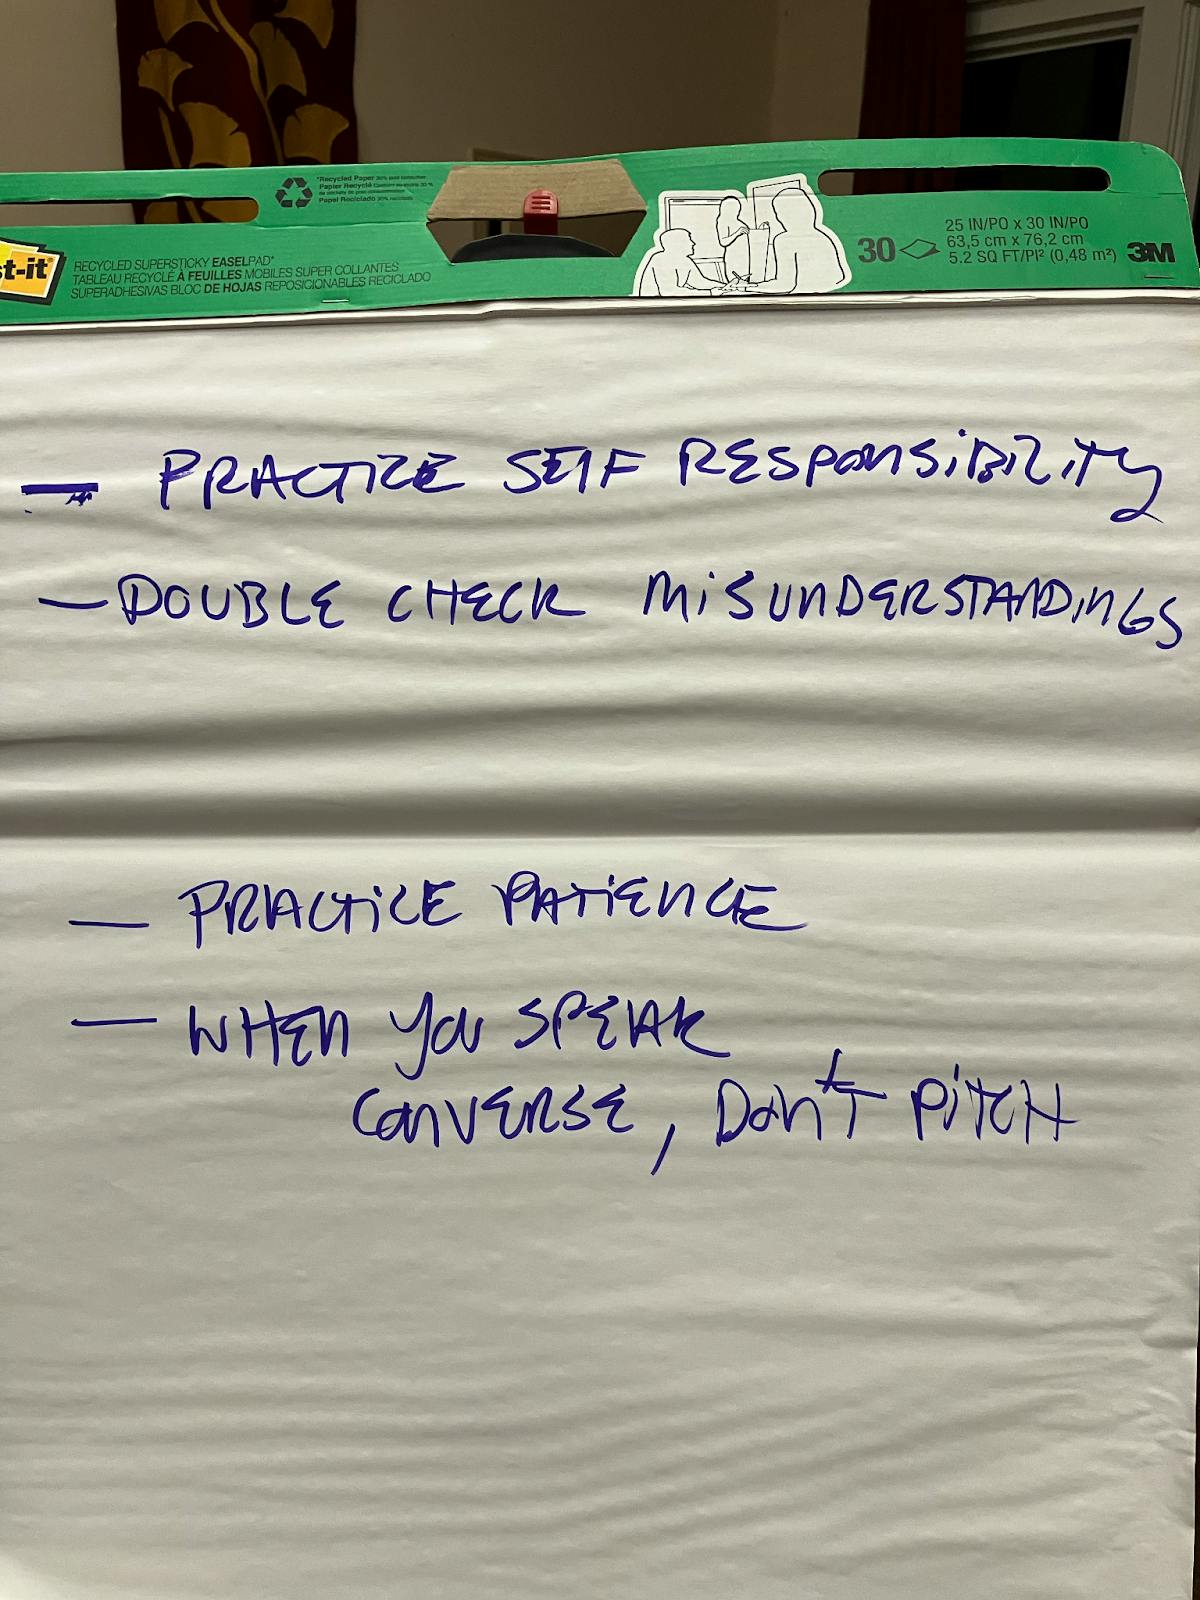 *Recycled Paper 30% post consumer
Papier Recyclé
Papel Reciclado 30%
st-it®
RECYCLED SUPERSTICKY EASELPAD*
TABLEAU RECYCLÉ À FEUILLES MOBILES SUPER COLLANTES
SUPERADHESIVAS BLOC DE HOJAS REPOSICIONABLES RECICLADO
30
25 IN/PO x 30 IN/PO
63,5 cm x 76,2 cm
5.2 SQ FT/PI² (0,48 m²)
3M
— PRACTICE SELF RESPONSIBILITY
— DOUBLE CHECK MISUNDERSTANDINGS
— PRACTICE PATIENCE
— WHEN YOU SPEAK
CONVERSE, DON'T PITCH